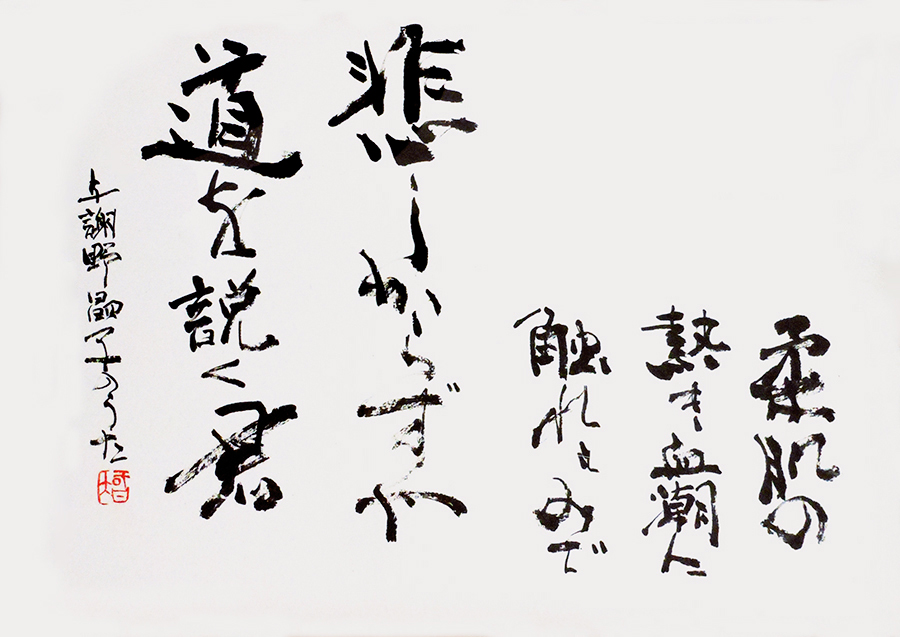 柔肌の
熱き血潮に
触れもみで
悲しからずや
道を説く君
与謝野晶子のうた